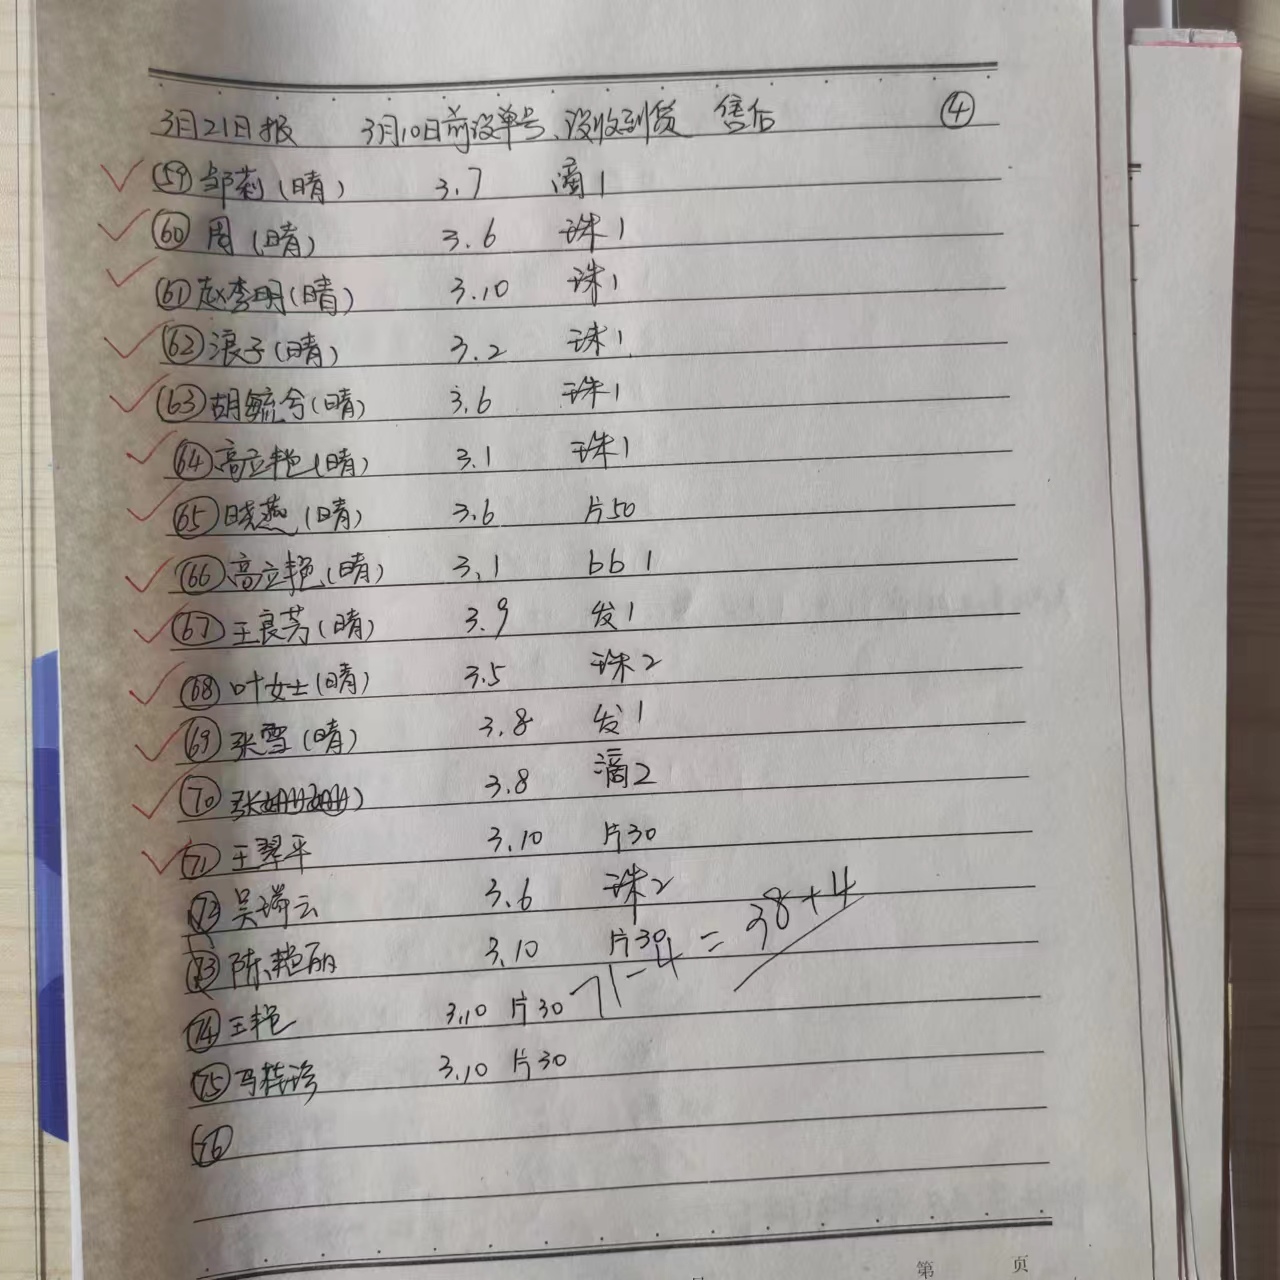 3月21日报 3月10日前没单号、没收到货 售后 ④
59 邹莉(晴) 3.7 滴1
60 周(晴) 3.6 珠1
61 赵李明(晴) 3.10 珠1
62 浪子(晴) 3.2 珠1
63 胡毓兮(晴) 3.6 珠1
64 高立艳(晴) 3.1 珠1
65 晓燕(晴) 3.6 片50
66 高立艳(晴) 3.1 bb 1
67 王良芳(晴) 3.9 发1
68 叶女士(晴) 3.5 珠2
69 张雪(晴) 3.8 发1
70 张 3.8 滴2
71 王翠平 3.10 片30
72 吴瑞云 3.6 珠2
73 陈艳丽 3.10 片30
71-4=38+4
74 王艳 3.10 片30
75 马桂珍 3.10 片30
76
第 页